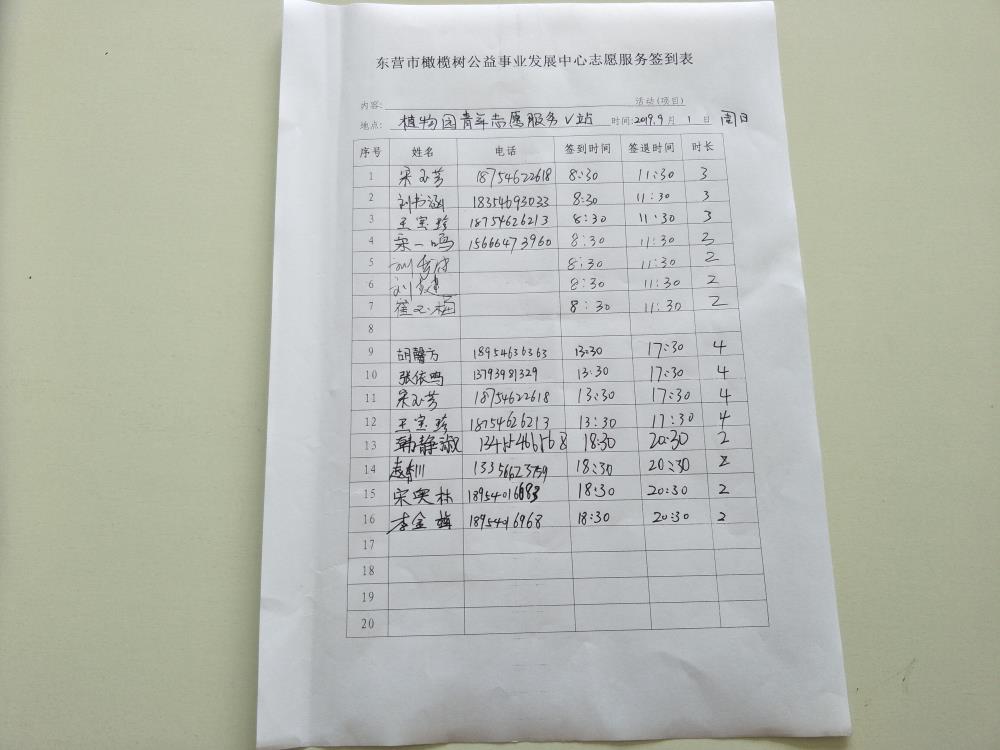 东营市橄榄树公益事业发展中心志愿服务签到表
内容: 活动(项目)
地点: 植物园青年志愿服务V站 时间:2019.9月1日 周日
序号 姓名 电话 签到时间 签退时间 时长
1 宋玉芳 18754622618 8:30 11:30 3
2 刘书涵 18354693033 8:30 11:30 3
3 王宝珍 18754626213 8:30 11:30 3
4 宋一鸣 15666473960 8:30 11:30 3
5 8:30 11:30 2
6 8:30 11:30 2
7 崔玉梅 8:30 11:30 2
8
9 胡馨方 18954636363 13:30 17:30 4
10 张依鸣 13793981329 13:30 17:30 4
11 宋玉芳 18754622618 13:30 17:30 4
12 王宝珍 18754626213 13:30 17:30 4
13 韩静淑 13455466568 18:30 20:30 2
14 18:30 20:30 2
15 宋奥林 18:30 20:30 2
16 李金梅 18954016968 18:30 20:30 2
17
18
19
20